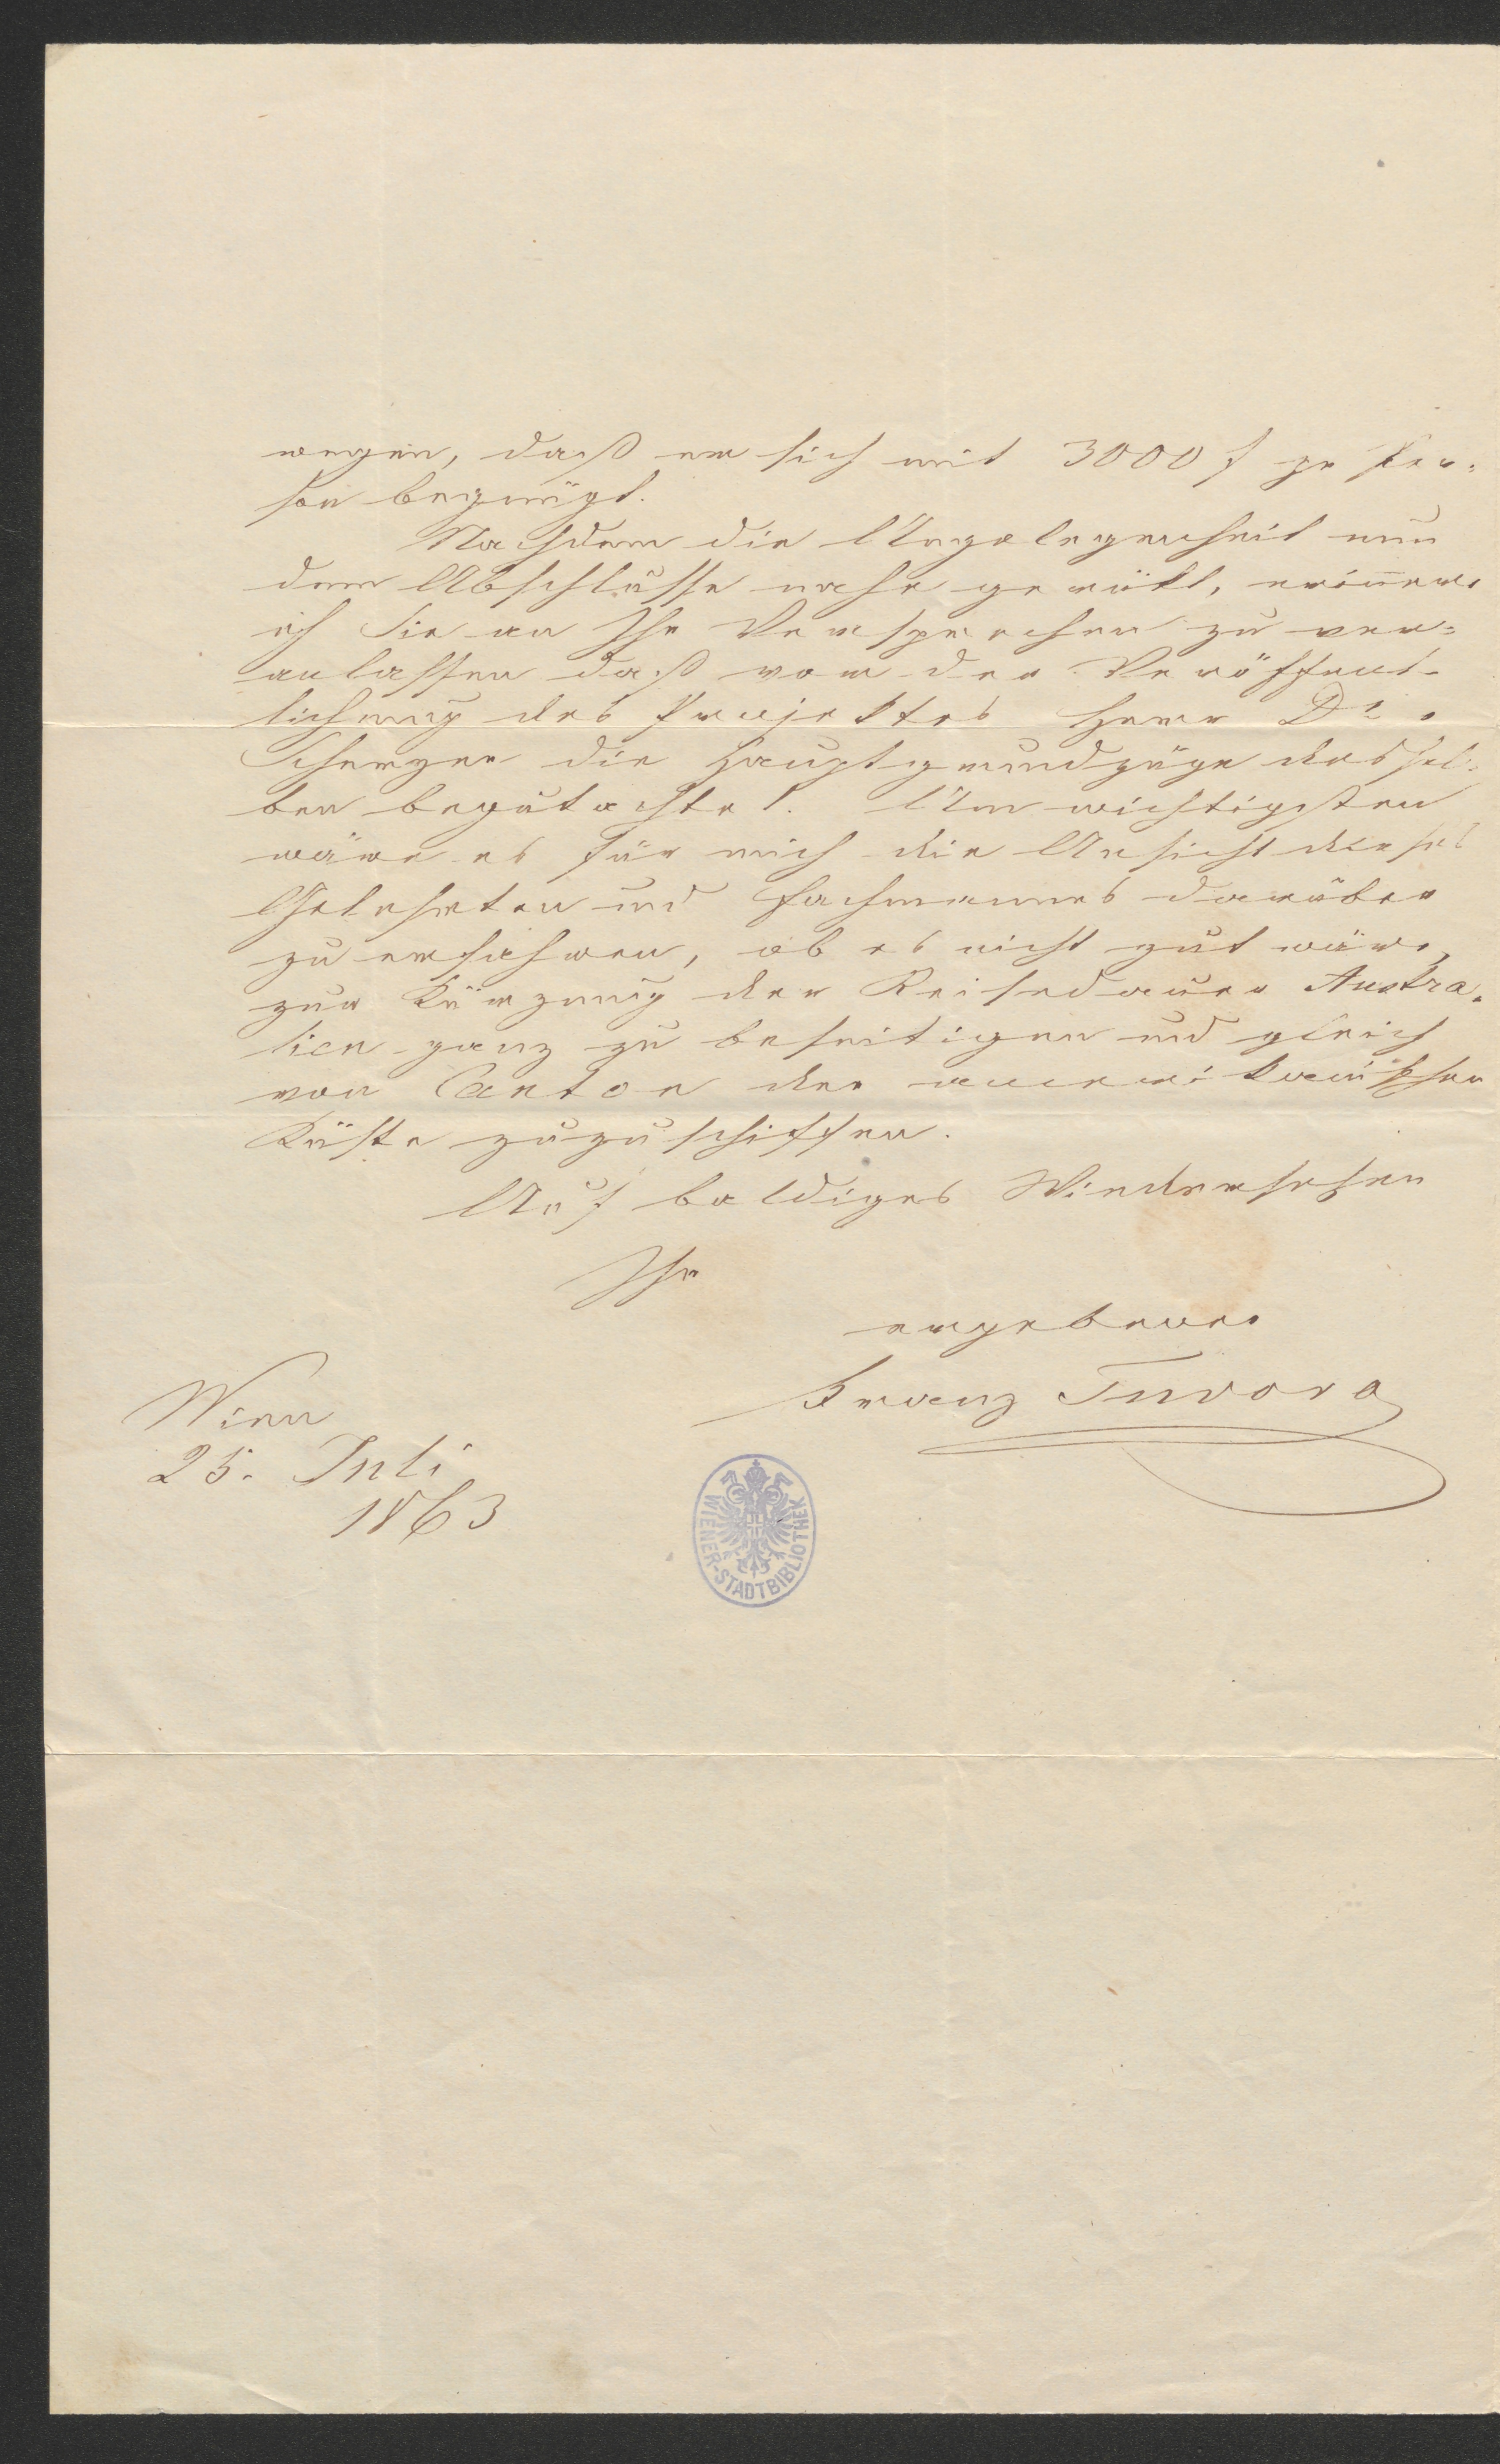 wegen, daß er sich mit 3000 f pr Per-
son begnügt.
Nachdem die Angelegenheit nun
dem Abschlusse nahe gerükt, erinnere
ich Sie an Ihr Versprechen zu ver-
anlassen daß vor der Veröffent-
lichung des Projektes Herr Dr.
Scherzer die Hauptgrundzüge dessel-
ben begutachtet. Am wichtigsten
wäre es für mich die Ansicht dieses
Gelehrten und Fachmannes darüber
zu erfahren, ob es nicht gut wäre,
zur Kürzung der Reisedauer Austra-
lien ganz zu beseitigen und gleich
von Canton der amerikanischen
Küste zuzuschiffen.
Auf baldiges Wiedersehen
Ihr
ergebener
Franz Tuvora
Wien
25. Juli
1863
WIENER-STADTBIBLIOTHEK